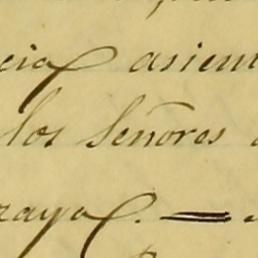 cia asien
los Señores
zaya. —